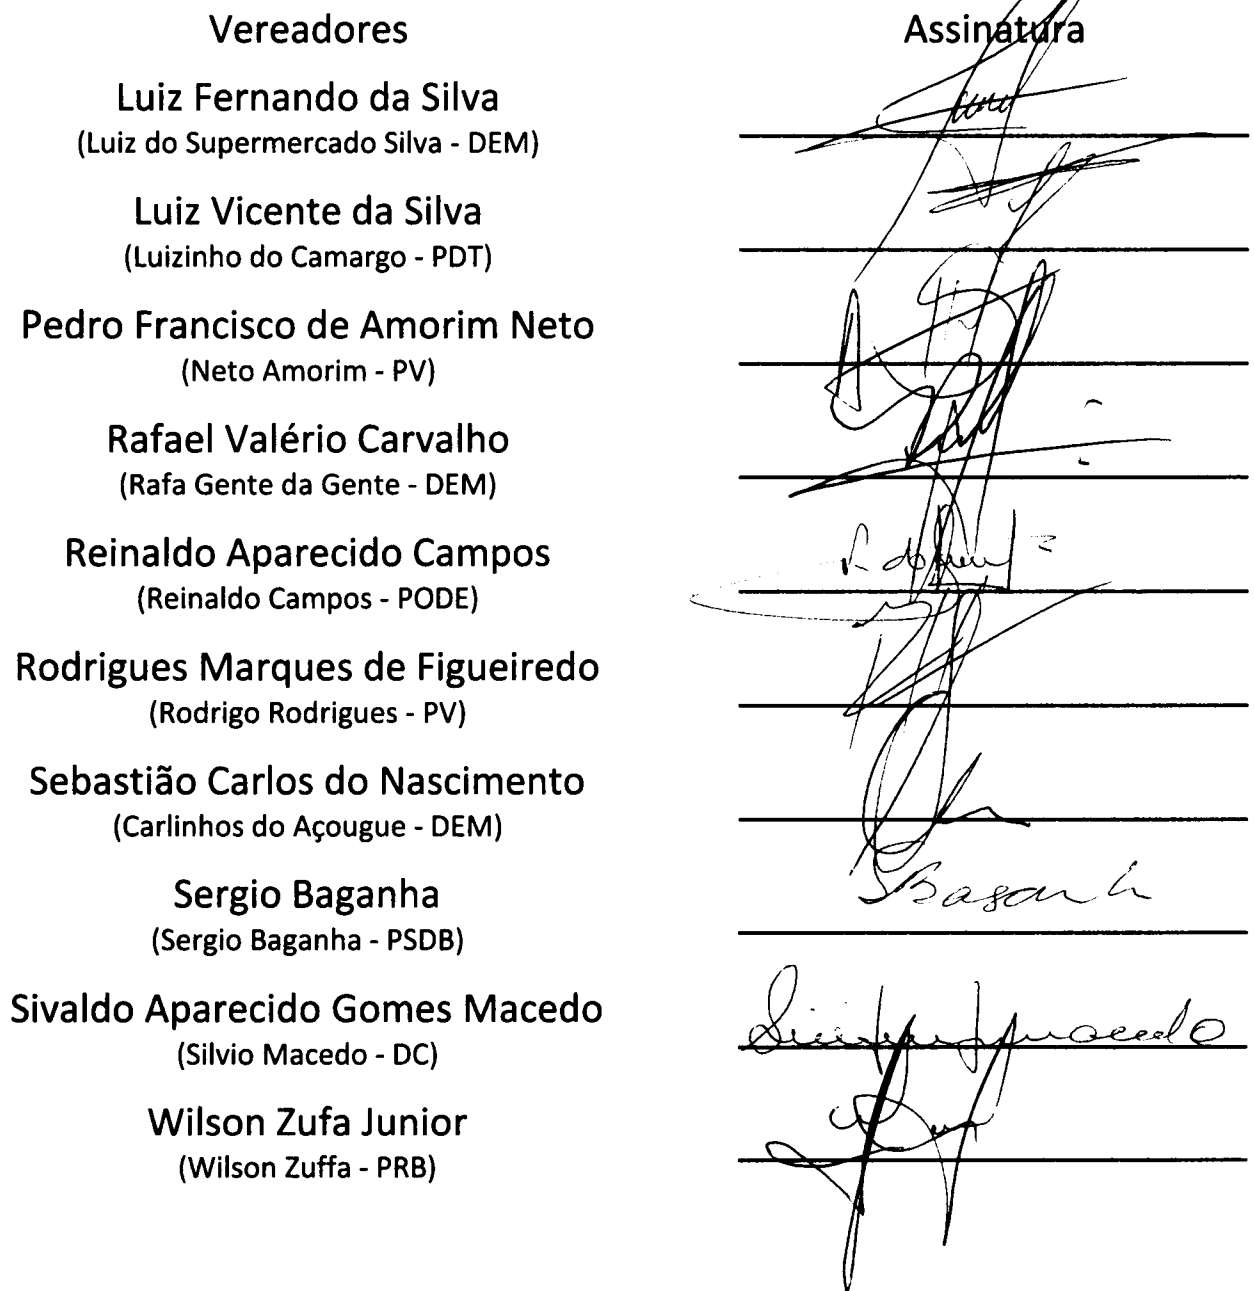 Vereadores Assinatura
Luiz Fernando da Silva
(Luiz do Supermercado Silva - DEM)
Luiz Vicente da Silva
(Luizinho do Camargo - PDT)
Pedro Francisco de Amorim Neto
(Neto Amorim - PV)
Rafael Valério Carvalho
(Rafa Gente da Gente - DEM)
Reinaldo Aparecido Campos
(Reinaldo Campos - PODE)
Rodrigues Marques de Figueiredo
(Rodrigo Rodrigues - PV)
Sebastião Carlos do Nascimento
(Carlinhos do Açougue - DEM)
Sergio Baganha
(Sergio Baganha - PSDB)
Sivaldo Aparecido Gomes Macedo
(Silvio Macedo - DC)
Wilson Zufa Junior
(Wilson Zuffa - PRB)